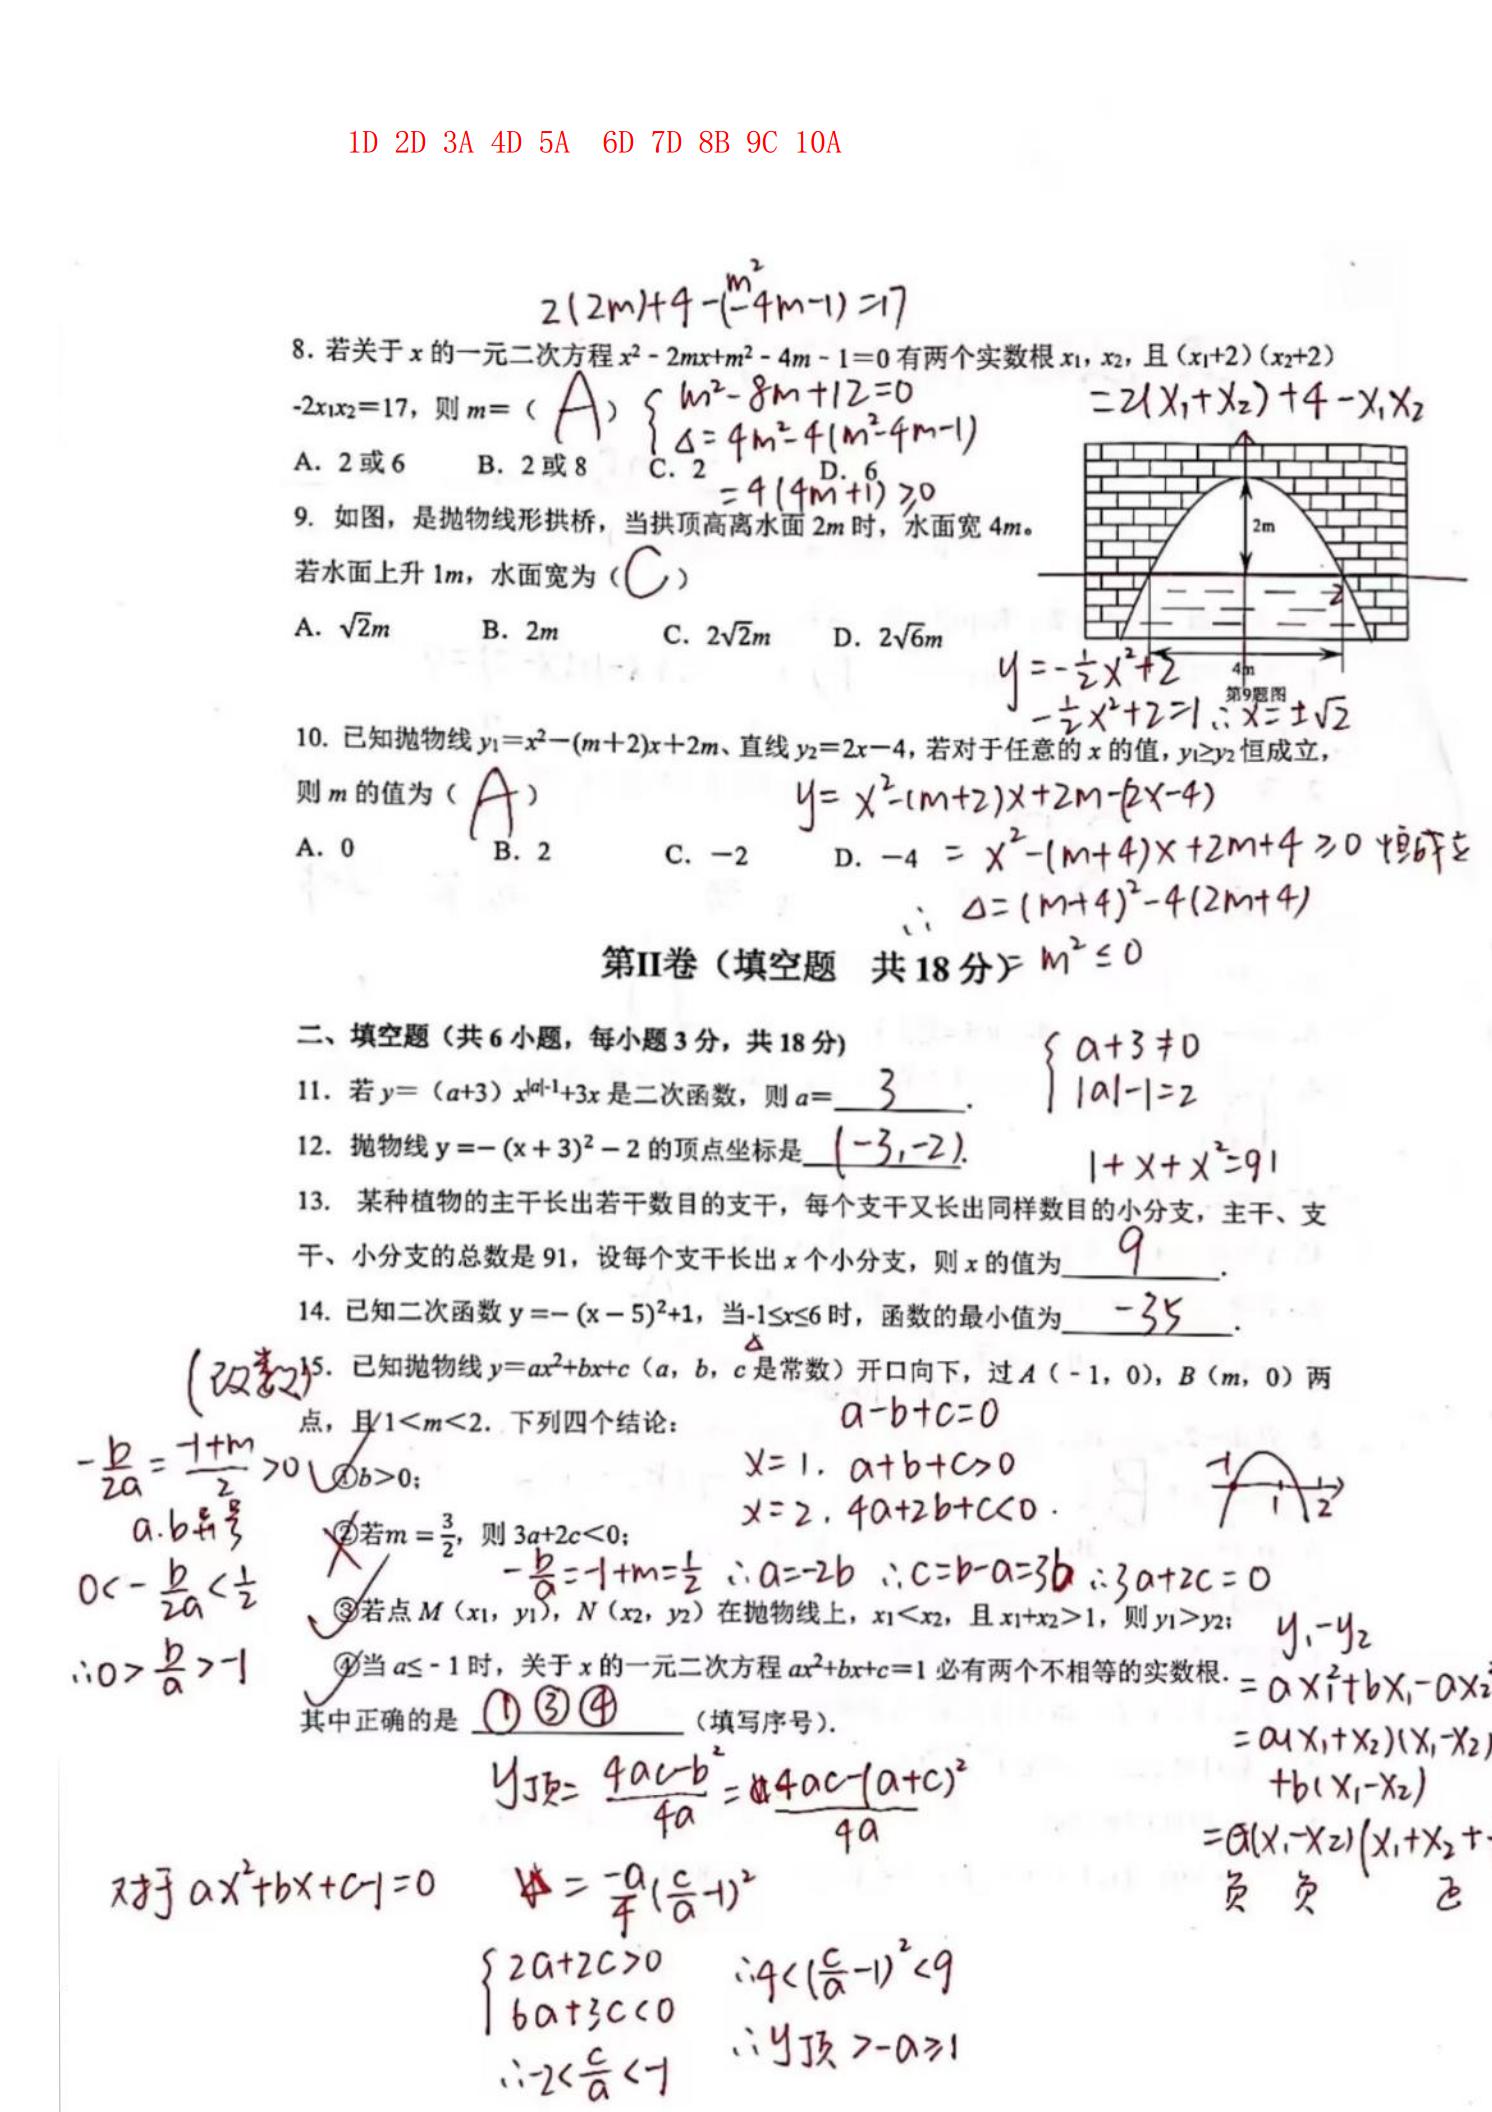 1D 2D 3A 4D 5A 6D 7D 8B 9C 10A
2(2m)+4-(m²-4m-1)=17
8. 若关于 x 的一元二次方程 x² - 2mx+m² - 4m - 1=0 有两个实数根 x₁, x₂, 且 (x₁+2) (x₂+2)
-2x₁x₂=17, 则 m= ( A )
{ m²-8m+12=0
Δ=4m²-4(m²-4m-1)
=4(4m+1)≥0
=2(x₁+x₂)+4-x₁x₂
A. 2 或 6 B. 2 或 8 C. 2 D. 6
9. 如图, 是抛物线形拱桥, 当拱顶高离水面 2m 时, 水面宽 4m。
若水面上升 1m, 水面宽为 ( C )
A. √2m B. 2m C. 2√2m D. 2√6m
2m
2
4m
第9题图
y=-½x²+2
-½x²+2=1 ∴x=±√2
10. 已知抛物线 y₁=x²-(m+2)x+2m、直线 y₂=2x-4, 若对于任意的 x 的值, y₁≥y₂ 恒成立,
则 m 的值为 ( A )
y= x²-(m+2)x+2m-(2x-4)
A. 0 B. 2 C. -2 D. -4
= x²-(m+4)x+2m+4≥0 恒成立
∴ Δ=(m+4)²-4(2m+4)
= m²≤0
第II卷 (填空题 共 18 分)
二、填空题 (共 6 小题, 每小题 3 分, 共 18 分)
11. 若 y= (a+3) x^|a|-1+3x 是二次函数, 则 a= 3 .
{ a+3≠0
|a|-1=2
12. 抛物线 y =- (x + 3)² - 2 的顶点坐标是 (-3,-2).
1+x+x²=91
13. 某种植物的主干长出若干数目的支干, 每个支干又长出同样数目的小分支, 主干、支
干、小分支的总数是 91, 设每个支干长出 x 个小分支, 则 x 的值为 9 .
14. 已知二次函数 y =- (x - 5)²+1, 当-1≤x≤6 时, 函数的最小值为 -35 .
15. 已知抛物线 y=ax²+bx+c (a, b, c 是常数) 开口向下, 过 A ( - 1, 0), B (m, 0) 两
点, 且 1<m<2. 下列四个结论:
a-b+c=0
x=1. a+b+c>0
x=2. 4a+2b+c<0.
-1
1
2
-b/2a = (-1+m)/2 >0
a.b异号
0<-b/2a<½
∴0>b/a>-1
①b>0;
②若m = 3/2, 则 3a+2c<0;
-b/a=-1+m=½ ∴a=-2b ∴c=b-a=3b ∴3a+2c=0
③若点 M (x₁, y₁), N (x₂, y₂) 在抛物线上, x₁<x₂, 且 x₁+x₂>1, 则 y₁>y₂;
④当 a≤ - 1 时, 关于 x 的一元二次方程 ax²+bx+c=1 必有两个不相等的实数根.
其中正确的是 ①③④ (填写序号).
y₁-y₂
=ax₁²+bx₁-ax₂²
=a(x₁+x₂)(x₁-x₂)
+b(x₁-x₂)
=a(x₁-x₂)(x₁+x₂+
负 负 正
y顶= (4ac-b²)/4a = (4ac-(a+c)²)/4a
对于 ax²+bx+c-1=0
= -a/4 (c/a-1)²
{ 2a+2c>0
6a+3c<0
∴-2<c/a<-1
∴4<(c/a-1)²<9
∴y顶>-a≥1